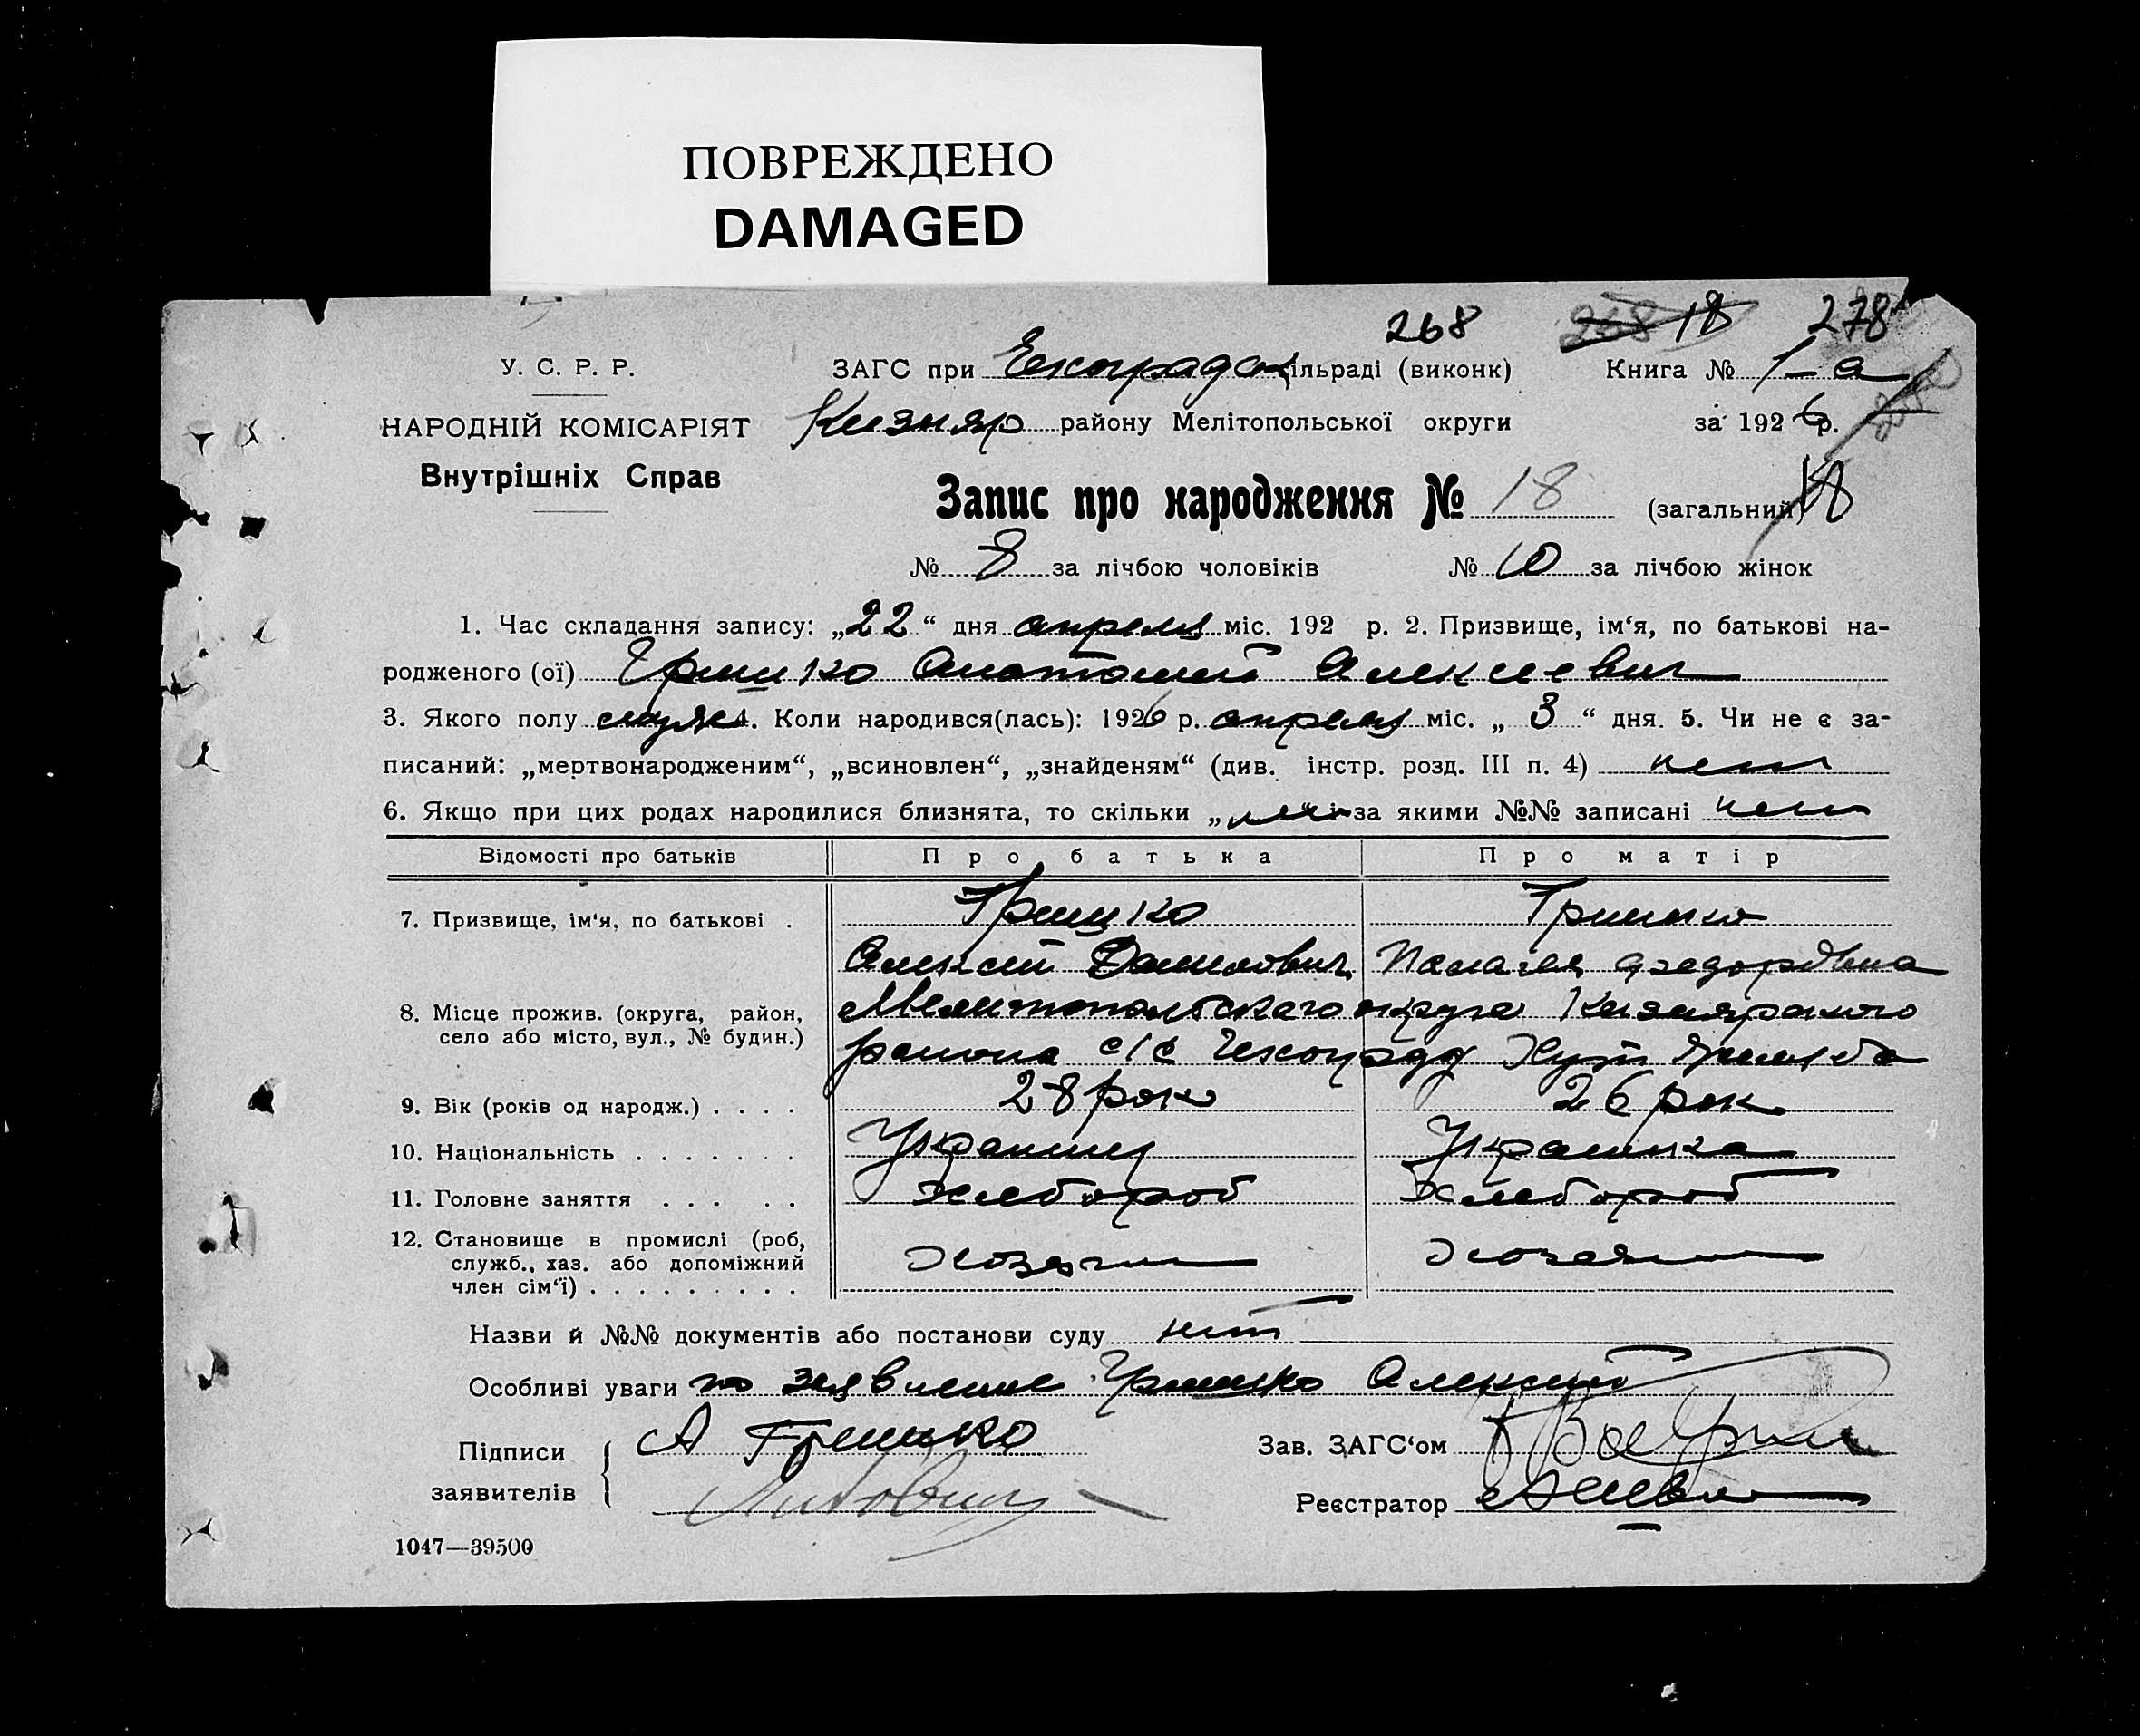 ПОВРЕЖДЕНО
DAMAGED
268 18 278
У. С. Р. Р. ЗАГС при сільраді (виконк) Книга № 1-а
НАРОДНІЙ КОМІСАРІЯТ Кизияр району Мелітопольської округи за 1926 р.
Внутрішніх Справ
Запис про народження № 18 (загальний) 18
№ 8 за лічбою чоловіків № 10 за лічбою жінок
1. Час складання запису: „22“ дня апреля міс. 192 р. 2. Призвище, ім‘я, по батькові на-
родженого (ої) Гришко Анатолий Алексеевич
3. Якого полу муж 4. Коли народився(лась): 1926 р. апреля міс. „3“ дня. 5. Чи не є за-
писаний: „мертвонародженим“, „всиновлен“, „знайденям“ (див. інстр. розд. III п. 4) нет
6. Якщо при цих родах народилися близнята, то скільки „нет“ і за якими №№ записані нет
Відомості про батьків Про батька Про матір
7. Призвище, ім‘я, по батькові . Гришко Гришко
Алексей Данилович Пелагея Федоровна
8. Місце прожив. (округа, район, Мелитопольского округа Кизиярского
село або місто, вул., № будин.) района с/с Хут
9. Вік (років од народж.) . . . . 28 рок 26 рок
10. Національність . . . . . . . Украинец Украинка
11. Головне заняття . . . . . Хлебороб Хлебороб
12. Становище в промислі (роб, Хозяин Хозяин
служб., хаз. або допоміжний
член сім‘ї) . . . . . . . . .
Назви й №№ документів або постанови суду нет
Особливі уваги по заявлению Гришко Алексей
Підписи А Гришко Зав. ЗАГС‘ом
заявителів Реєстратор
1047—39500